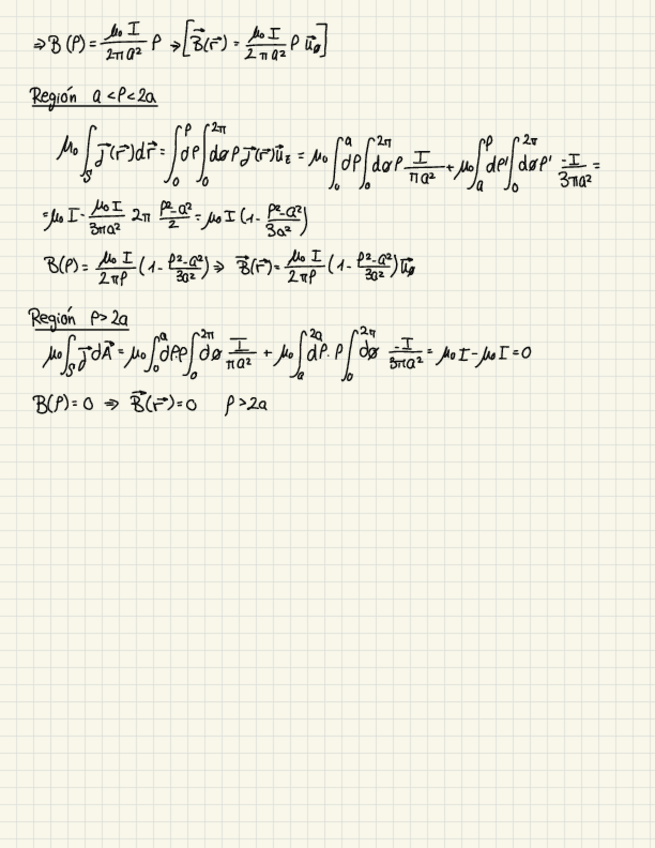 ⇒ B(ρ) = μ₀I/2πa² ρ ⇒ [B⃗(r⃗) = μ₀I/2πa² ρ u⃗ø]
Región a < ρ < 2a
μ₀ ∫_S J⃗(r⃗)dr⃗ = ∫₀^ρ dρ ∫₀^2π dø ρ J⃗(r⃗)u⃗_z = μ₀ ∫₀^a dρ ∫₀^2π dø ρ I/πa² + μ₀ ∫_a^ρ dρ' ∫₀^2π dø ρ' -I/3πa² =
= μ₀I - μ₀I/3πa² 2π ρ²-a²/2 = μ₀I (1 - ρ²-a²/3a²)
B(ρ) = μ₀I/2πρ (1 - ρ²-a²/3a²) ⇒ B⃗(r⃗) = μ₀I/2πρ (1 - ρ²-a²/3a²) u⃗ø
Región ρ > 2a
μ₀ ∫_S J⃗dA⃗ = μ₀ ∫₀^a dρρ ∫₀^2π dø I/πa² + μ₀ ∫_a^2a dρ·ρ ∫₀^2π dø -I/3πa² = μ₀I - μ₀I = 0
B(ρ) = 0 ⇒ B⃗(r⃗) = 0 ρ > 2a